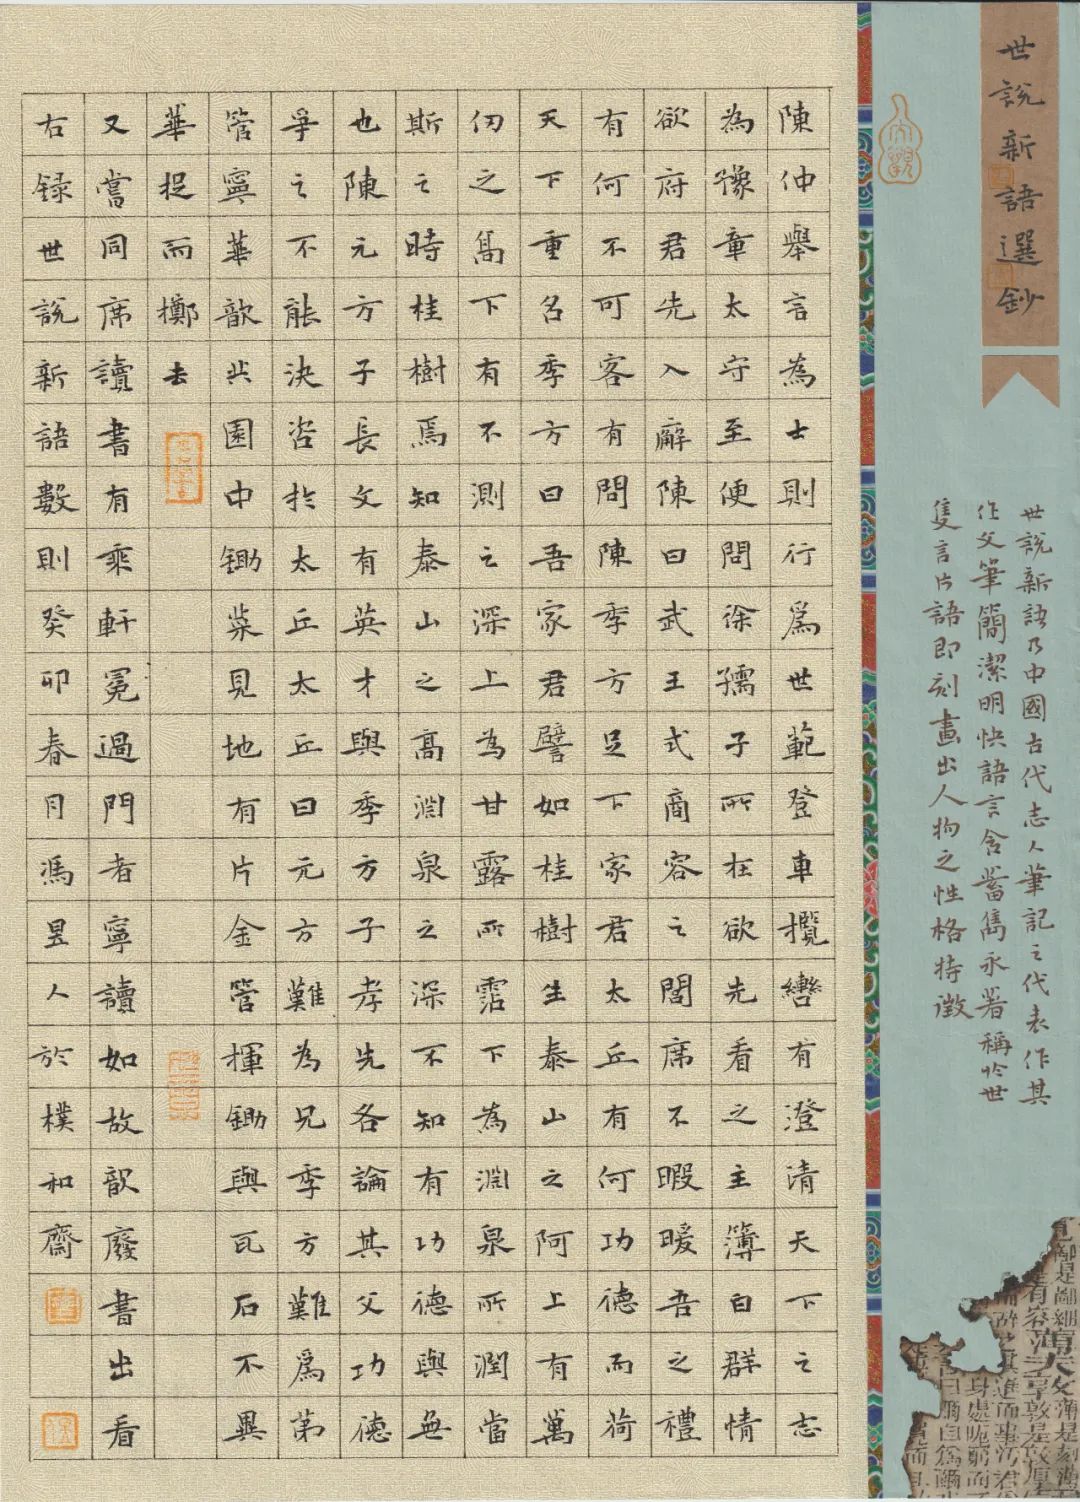 世說新語選鈔
世說新語乃中國古代志人筆記之代表作其
以文筆簡潔明快語言含蓄雋永著稱於世
隻言片語即刻畫出人物之性格特徵
陳仲舉言為士則行爲世範登車攬轡有澄清天下之志
為豫章太守至便問徐孺子所在欲先看之主簿白群情
欲府君先入廨陳曰武王式商容之閭席不暇暖吾之禮
有何不可客有問陳季方足下家君太丘有何功德而荷
天下重名季方曰吾家君譬如桂樹生泰山之阿上有萬
仞之高下有不測之深上為甘露所霑下為淵泉所潤當
斯之時桂樹焉知泰山之高淵泉之深不知有功德與無
也陳元方子長文有英才與季方子孝先各論其父功德
爭之不能決咨於太丘太丘曰元方難為兄季方難爲弟
管寧華歆共園中鋤菜見地有片金管揮鋤與瓦石不異
華捉而擲去
又嘗同席讀書有乘軒冕過門者寧讀如故歆廢書出看
右錄世說新語數則癸卯春月馮昱人於樸和齋